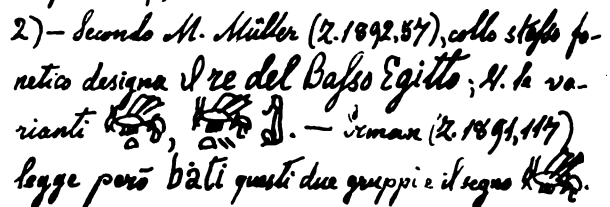 2) – Secondo M. Müller (Z. 1892, 57), collo stesso fo-
netico designa il re del Basso Egitto; V. le va-
rianti , . – Erman (Z. 1891, 117)
legge però bȧti questi due gruppi e il segno .